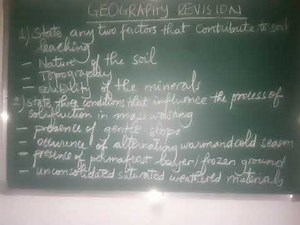 GEOGRAPHY REVISION
1) State any two factors that contribute to soil
leaching
- Nature of the soil
- Topography
- solubility of the minerals
2) State three conditions that influence the process of
solifluction in mass wasting
- presence of gentle slope
- occurence of alternating warm and cold season
- presence of permafrost layer/frozen ground
- unconsolidated saturated weathered materials